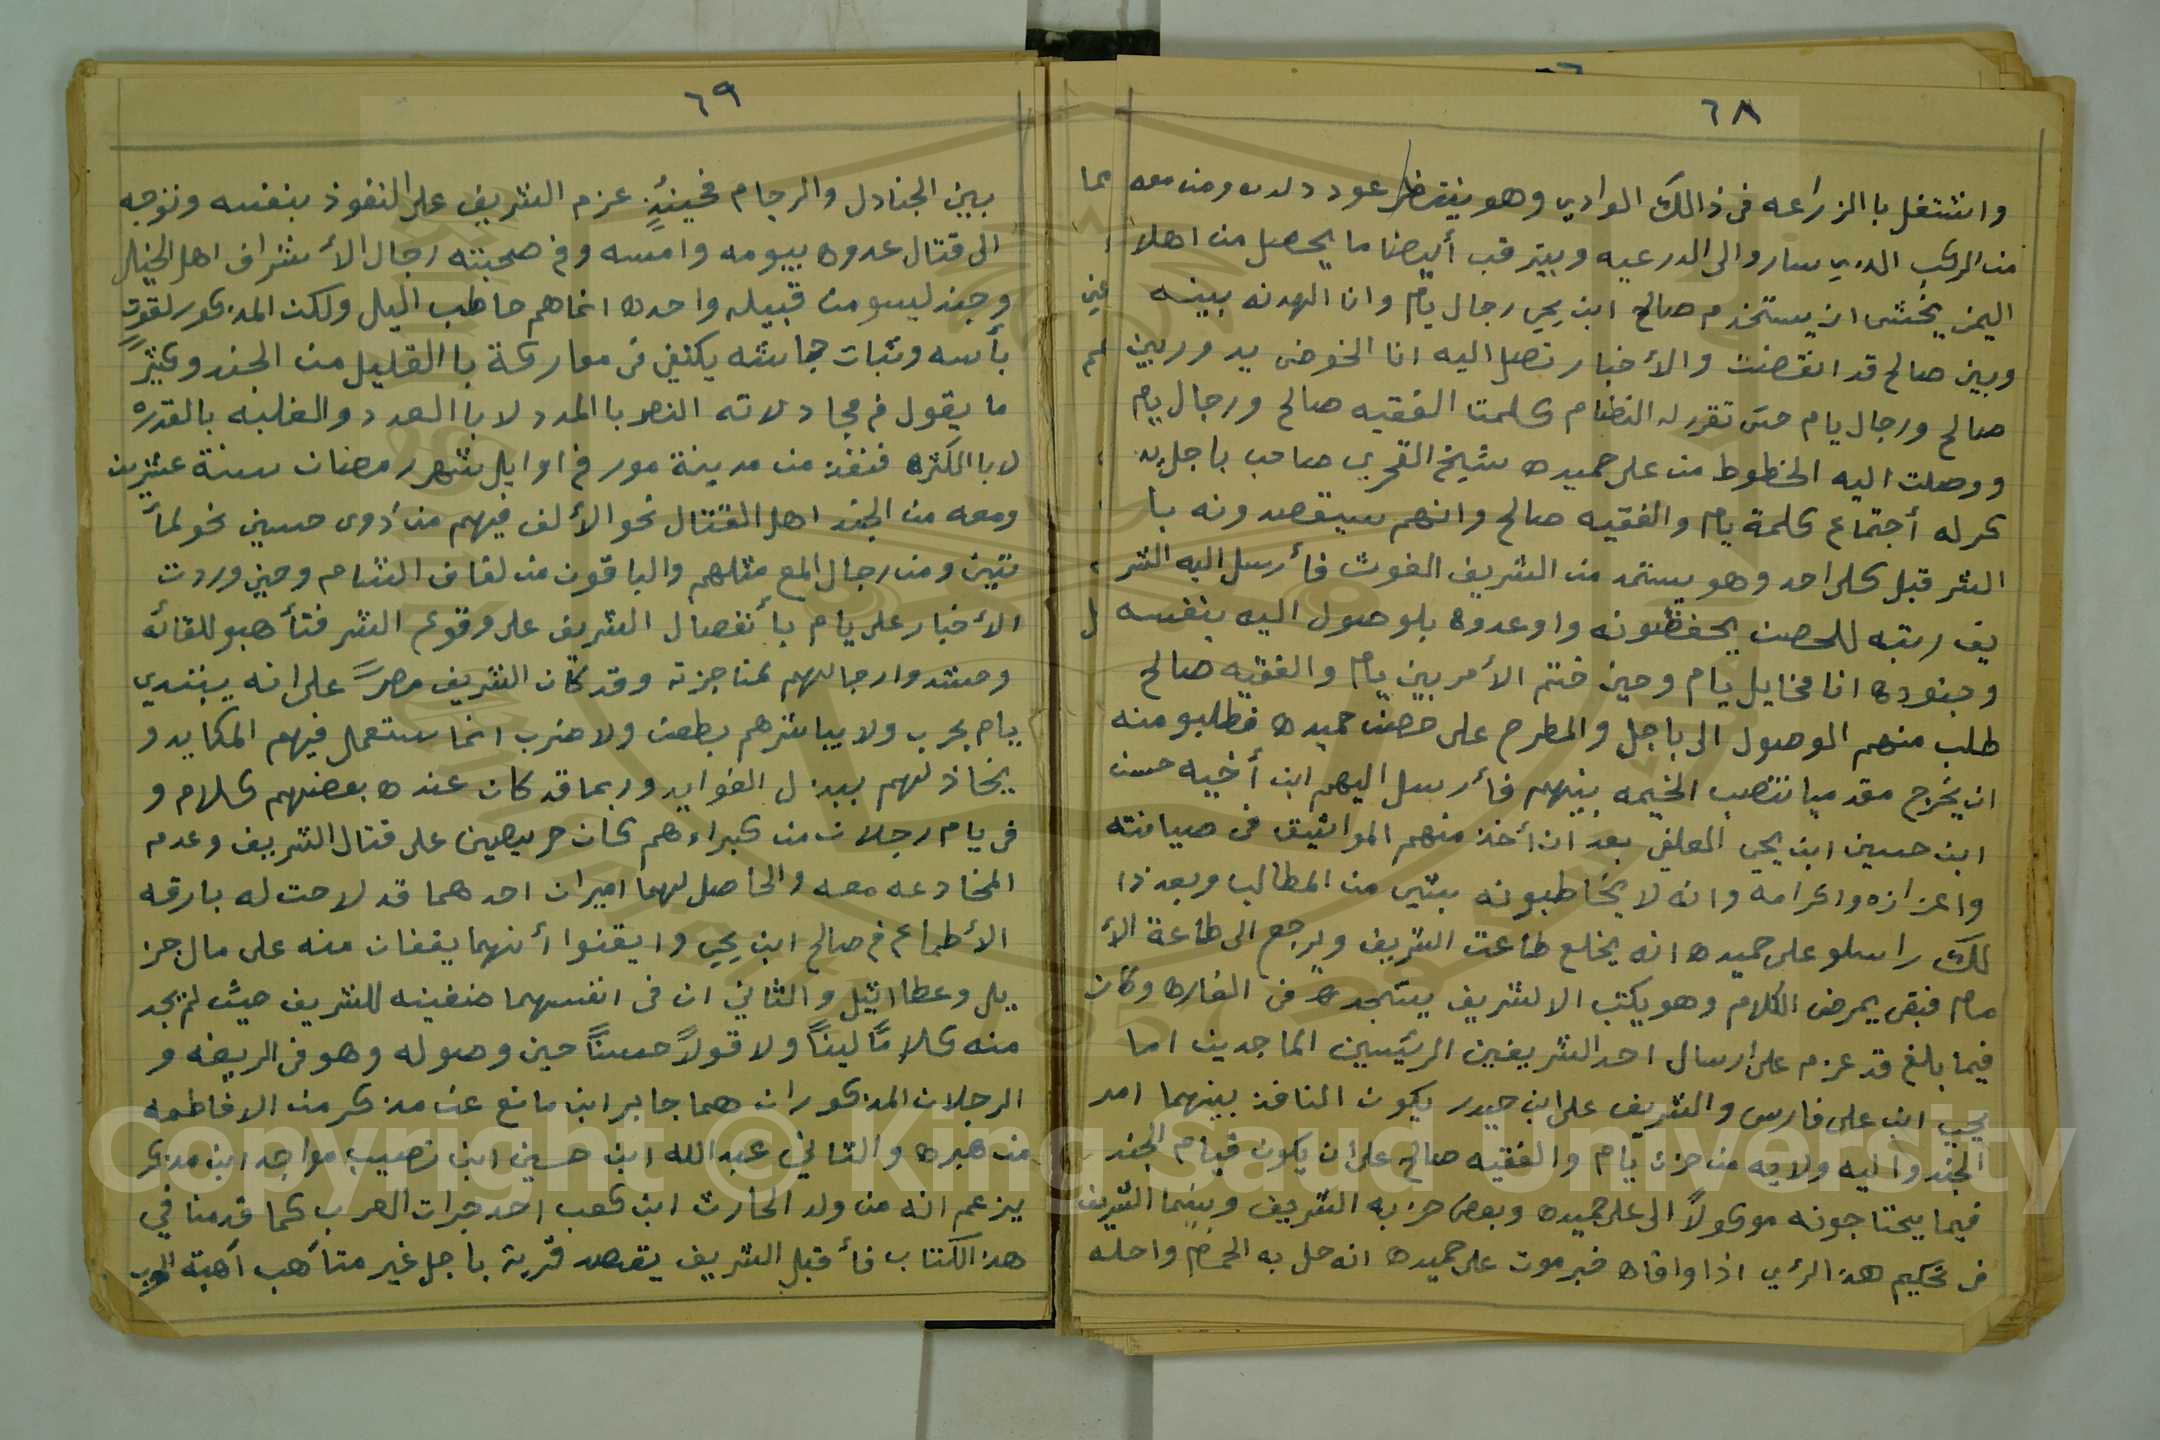 ٦٨
واشتغل با الزراعه فى ذالك الوادي وهو ينتظر عود ولده ومن معه
من الركب الذي سارو الى الدرعيه ويترقب أيضا ما يحصل من اهلا
اليمن يخشى ان يستخدم صالح ابن يحي رجال يام وانا الهدنه بينه
وبين صالح قد انقضت والأخبار تصل اليه انا الخوض يدور بين
صالح ورجال يام حتى تقرر له النظام كلمتا الفقيه صالح ورجال يام
ووصلت اليه الخطوط من على حميده شيخ القحري صاحب باجل يذ
كر له أجتماع كلمة يام والفقيه صالح وانهم سيقصدونه با
الشر قبل كل احد وهو يستمد من الشريف الغوث فأرسل اليه الشر
يف رتبه للحصن يحفظونه واوعدوه بلوصول اليه بنفسه
وجنوده انا مخايل يام وحين ختم الأمر بين يام والفقيه صالح
طلب منهم الوصول الى باجل والمطرح على حصن حميده فطلبو منه
ان يخرج مقدميا تنتصب الخيمه بينهم فأرسل اليهم ابن أخيه حسن
ابن حسين ابن يحي العلفي بعد ان أخذ منهم المواثيق فى صيانته
واعزازه واكرامه وانه لا يخاطبونه بشي من المطالب وبعد ذا
لك راسلو على حميده انه يخلع طاعت الشريف ويرجع الى طاعة الأ
مام فبقى يمرض الكلام وهو يكتب الا لشريف يستنجده فى الغاره وكان
فيما بلغ قد عزم على ارسال احد الشريفين الرئيسين الماجدين اما
يحيى ابن على فارس والشريف على ابن حيدر يكون النافذ بينهما امد
الجند واليه ولايه من حزن يام والفقيه صالح على ان يكون قيام الجند
فيما يحتاجونه موكولاً الى على حميده وبعض حزبه الشريف وبينما الشريف
فى تحكيم هذ الرئي اذا وافاه خبر موت على حميده انه حل به الحمام واحله
٦٩
بين الجنادل والرجام فحينئذٍ عزم الشريف على النفوذ بنفسه وتوجه
الى قتال عدوه بيومه وامسه وفى صحبته رجال الأشراف اهل الخيل
وجند ليسو من قبيله واحده انما هم حاطب اليل ولكن المذكور لقوت
بأسه وثبات جاشه يكتفي فى معاركة با القليل من الجند وكثيرً
ما يقول فى مجادلاته النصر با المدد لا با العدد والغلبه بالقدره
لا با الكثره فنفذ من مدينة مور فى اوايل شهر رمضان سنة عشرين
ومعه من الجند اهل القتال نحو الألف فيهم من ذوى حسين نحو لمأ
تيين ومن رجال المع مثلهم والباقون من لفاف الشام وحين وردت
الأخبار على يام بأنفصال الشريف على وقوع الشر فتأهبو للقائه
وحشدوا رجالهم لمناجزته وقد كان الشريف مصراً على انه يبتدي
يام بحرب ولا يباشرهم بطعن ولا ضرب انما ستعمل فيهم المكايد و
يخاذلهم ببذل الفوايد وربما قد كان عنده بعضهم كلام و
فى يام رجلان من كبراءهم كان حريصين على قتال الشريف وعدم
المخادعه معه والحاصل لهما اميران احدهما قد لاحت له بارقه
الأطماع فى صالح ابن يحي وايقنوا أنهما يقفان منه على مال جز
يل وعطا اثيل والثاني ان فى انفسهما ضغينه للشريف حيث لم يجد
منه كلاماً ليناً ولا قولاً حسناً حين وصوله وهو فى الريغه و
الرجلان المذكوران هما جابر ابن مانع عن مذكر من الا فاطمه
من هبره والثاني عبد الله ابن حسين ابن نصيب مواجد ابن مذكر
يزعم انه من ولد الحارث ابن كعب احد جمرات العرب كما قدمنا في
هذ الكتاب فأقبل الشريف يقصد قرية باجل غير متأهب أهبة الحرب